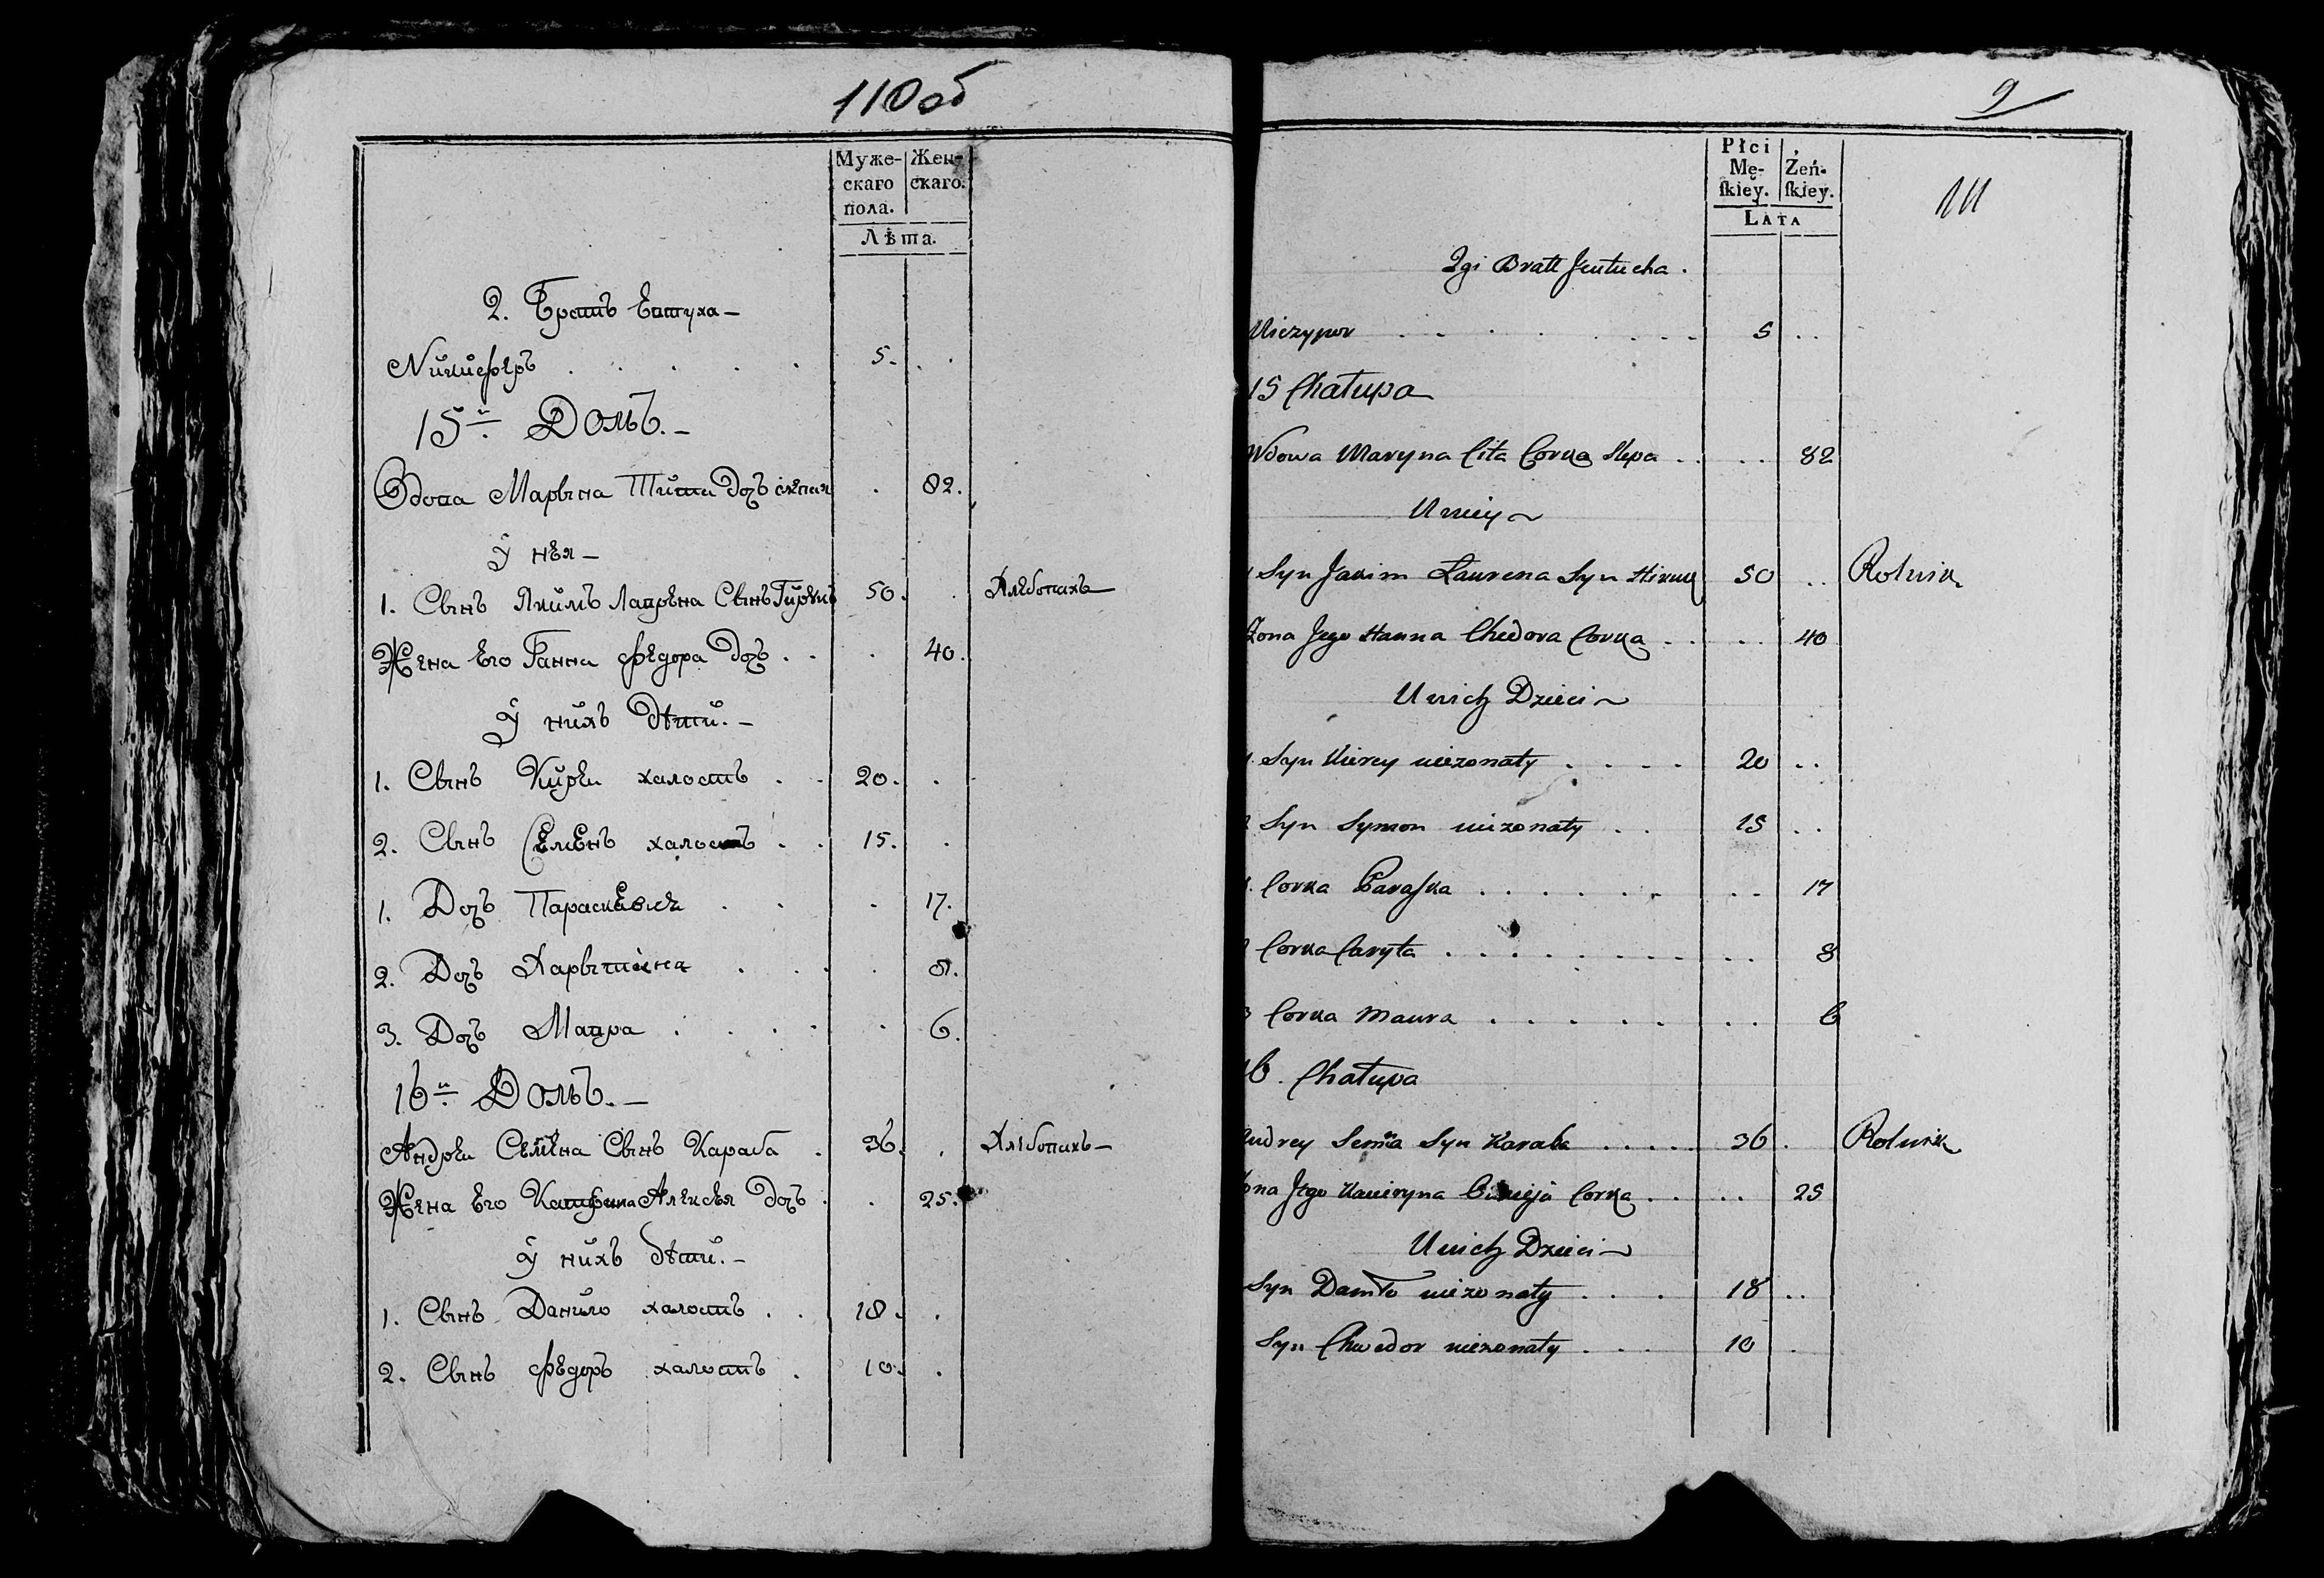 110 об
Муже- Жен-
скаго скаго.
пола.
Лѣта.
2. Братъ Евтуха –
Никифоръ . . . . . 5. .
15й Домъ. –
Вдова Марына Тита Доч слепая . 82.
У нея –
1. Сынъ Якимъ Лаврена Сынъ 50. . Хлебопахъ
Жена Его Ганна Федора Доч . . . 40.
У нихъ дѣти. –
1. Сынъ Кирей халостъ . . 20. .
2. Сынъ Семенъ халостъ . . 15. .
1. Доч Параскевия . . . 17.
2. Доч Харытина . . . . 8.
3. Доч Мавра . . . . . 6.
16й Домъ. –
Андрей Семена Сынъ Караба . 36. . Хлебопахъ –
Жена Его Катерина Алексея Доч . . 25.
У нихъ дѣти. –
1. Сынъ Данило халостъ . . 18. .
2. Сынъ Федоръ халостъ . 10. .
9
Płci
Mę- Żeń-
ſkiey. ſkiey.
LATA
111
2gi Bratt Jeutucha .
Niczypor . . . . . . . . 5 . .
15 Chałupa
Wdowa Maryna Cita Corka slepa . . . . 82
U niey ~
1 Syn Jakim Laurena Syn 50 . . Rolnik
Zona Jego Hanna Chedora Corka . . . . 40
U nich Dzieci ~
1. Syn Kirey niezonaty . . . . 20 . .
2 Syn Symon niezonaty . . 15 . .
1. Corka Paraſka . . . . . . . . 17
2 Corka Caryta . . . . . . . . . . 8
3 Corka Maura . . . . . . . . 6
16. Chałupa
Andrey Semena Syn Karaba . . . . . 36 . Rolnik
Zona Jego Kaciryna Corka . . . . 25
U nich Dzieci ~
Syn Daniło niezonaty . . . . 18 . .
Syn Chwedor niezonaty . . . 10 .